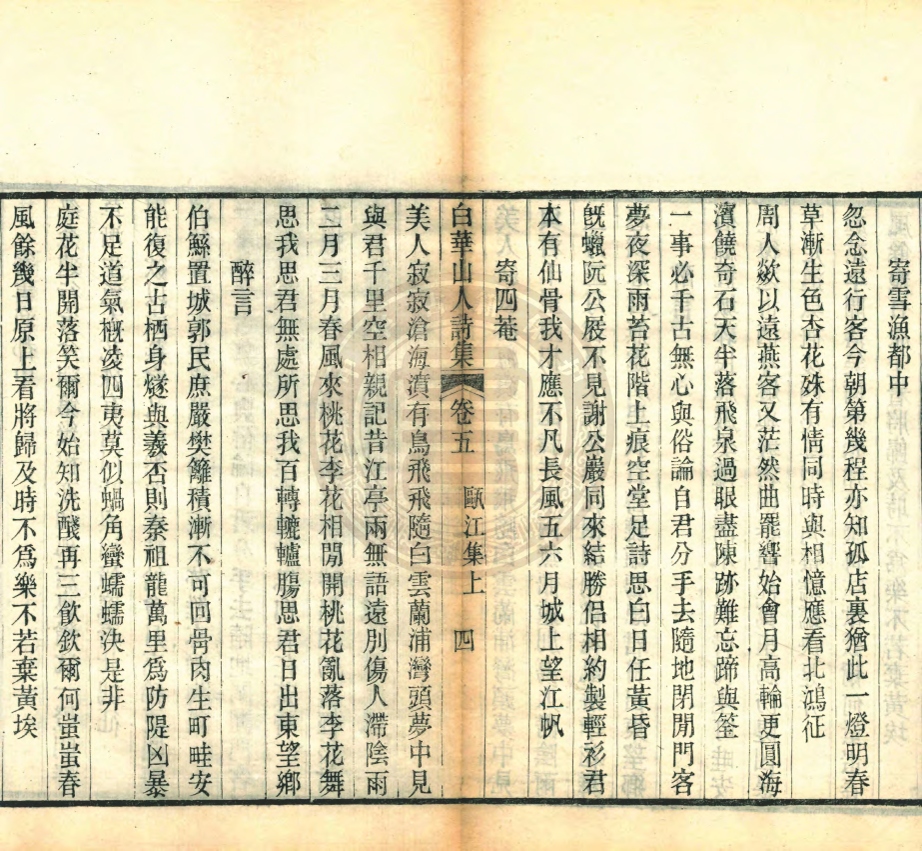 寄雪漁都中
忽念遠行客今朝第幾程亦知孤店裏猶此一燈明春
草漸生色杏花殊有情同時與相憶應看北鴻征
周人歘以遠燕客又茫然曲罷響始會月高輪更圓海
濱饒奇石天半落飛泉過眼盡陳跡難忘蹄與筌
一事必千古無心與俗論自君分手去隨地閉閒門客
夢夜深雨苔花階上痕空堂足詩思白日任黃昏
旣蠟阮公屐不見謝公巖同來結勝侶相約製輕衫君
本有仙骨我才應不凡長風五六月城上望江帆
寄四菴
白華山人詩集 卷五 甌江集上 四
美人寂寂滄海濆有鳥飛飛隨白雲蘭浦灣頭夢中見
與君千里空相親記昔江亭兩無語遠別傷人滯陰雨
二月三月春風來桃花李花相閒開桃花亂落李花舞
思我思君無處所思我百轉轆轤腸思君日出東望鄉
醉言
伯鯀置城郭民庶嚴樊籬積漸不可回骨肉生町畦安
能復之古栖身燧與羲否則秦祖龍萬里爲防隄凶暴
不足道氣槪凌四夷莫似蝸角蠻蠕蠕決是非
庭花半開落笑爾今始知洗醆再三飮飮爾何蚩蚩春
風餘幾日原上看將歸及時不爲樂不若棄黃埃